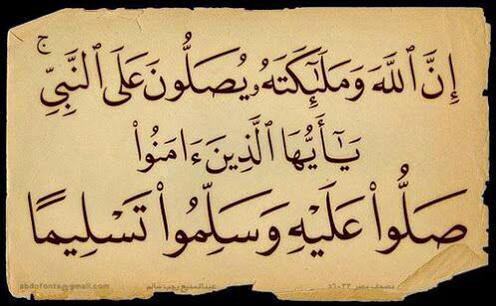 إِنَّ ٱللَّهَ وَمَلَٰٓئِكَتَهُۥ يُصَلُّونَ عَلَى ٱلنَّبِيِّۚ
يَٰٓأَيُّهَا ٱلَّذِينَ ءَامَنُوا۟
صَلُّوا۟ عَلَيْهِ وَسَلِّمُوا۟ تَسْلِيمًا
abdofonts@gmail.com عبدالسميع رجب سالم